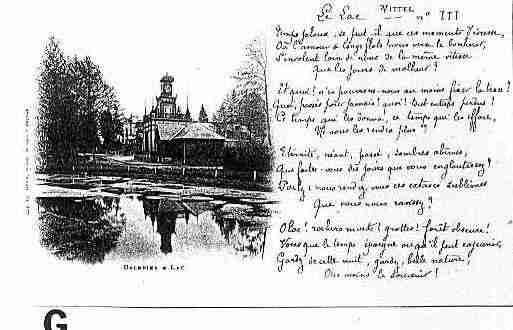 VITTEL
Le Lac — n° III
Temps jaloux, se peut-il que ces moments d'ivresse,
Où l'amour à longs flots nous verse le bonheur,
S'envolent loin de nous de la même vitesse
Que les jours de malheur ?
Et quoi ! n'en pourrons-nous au moins fixer la trace ?
Quoi, passés pour jamais ! quoi ! tout entiers perdus !
Ce temps qui les donna, ce temps qui les efface,
Ne nous les rendra plus ?
Eternité, néant, passé, sombres abîmes,
Que faites-vous des jours que vous engloutissez ?
Parlez : nous rendrez-vous ces extases sublimes
Que vous nous ravissez ?
O lac ! rochers muets ! grottes ! forêt obscure !
Vous que le temps épargne ou qu'il peut rajeunir,
Gardez de cette nuit, gardez, belle nature,
Au moins le souvenir !
& LAC
G